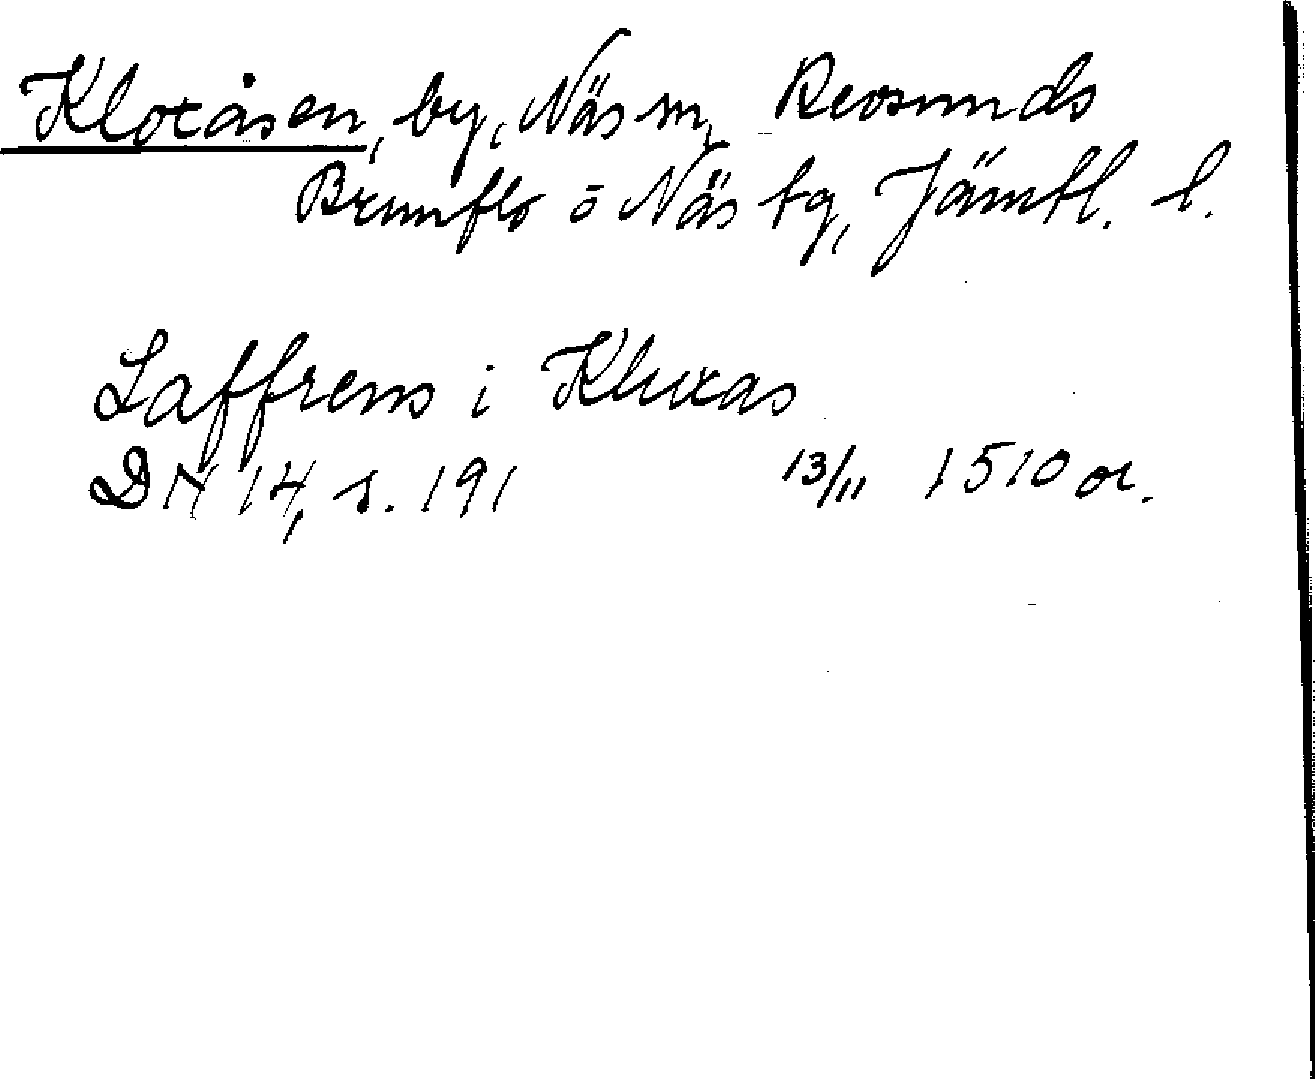 Kloxåsen, by, Näs sn, Revsunds
Brunflo o Näs tg, Jämtl. l.
Laffrens i Kluxas
DN 14, s. 191 13/11 1510 or.